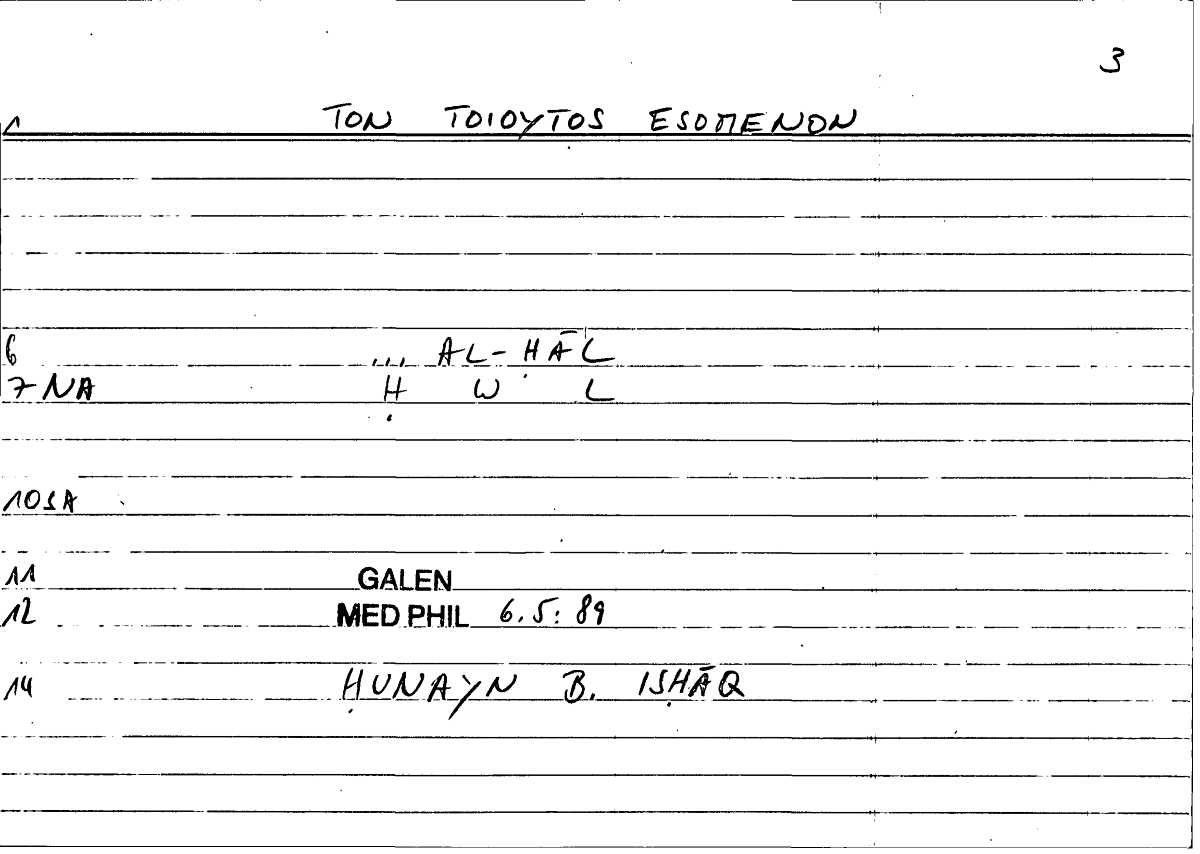 3
1 TON TOIOYTOS ESOMENON
6 ... AL-ḤĀL
7 NA Ḥ W L
10SA
11 GALEN
12 MED PHIL 6.5: 89
14 ḤUNAYN B. ISḤĀQ